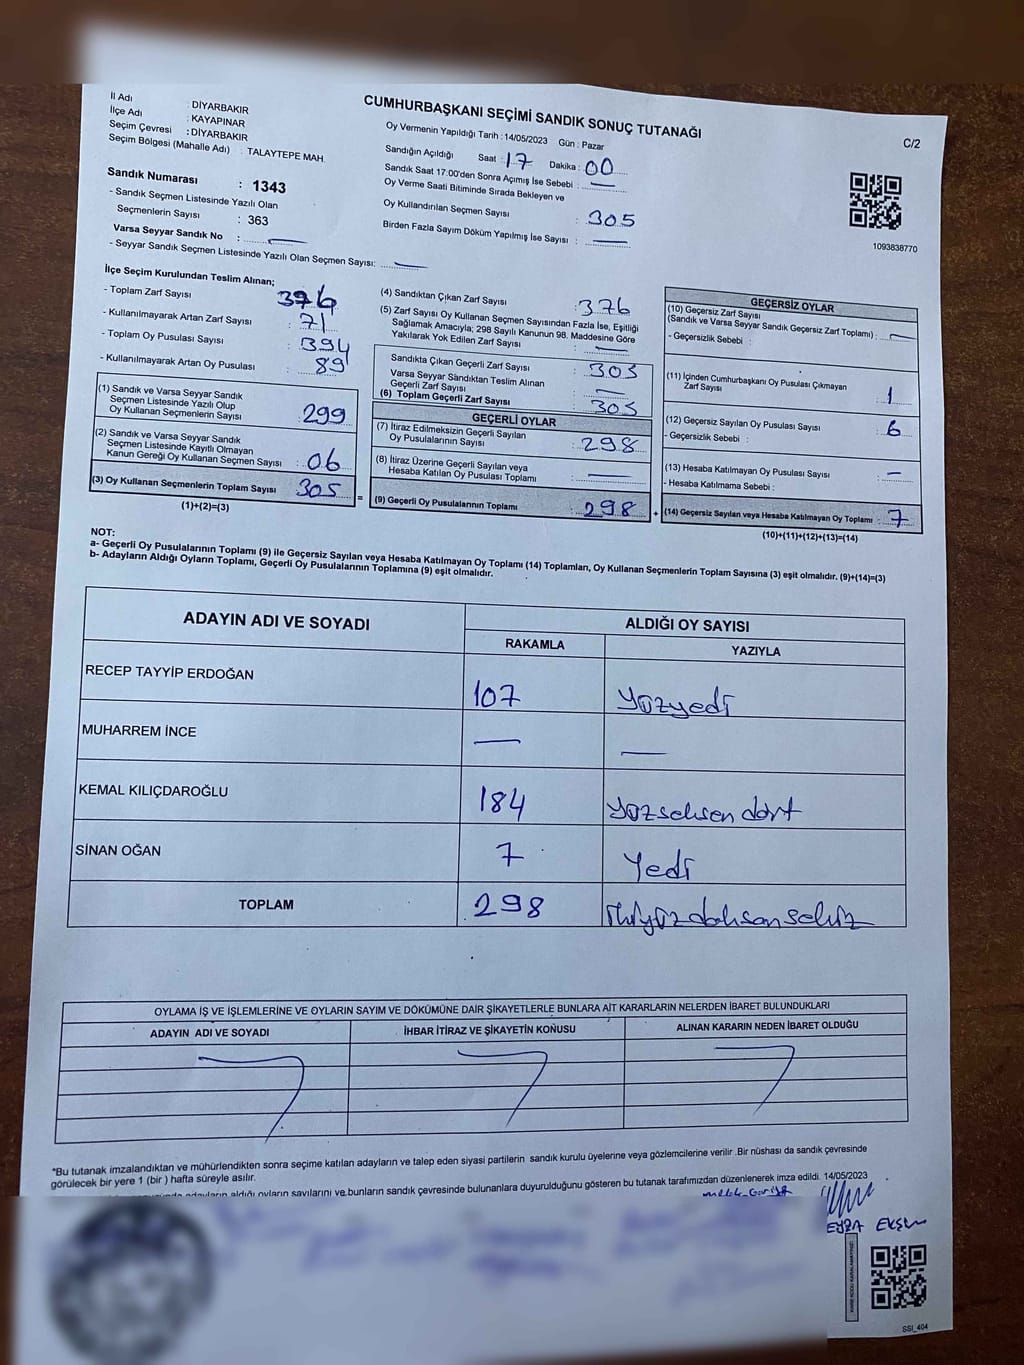 İl Adı : DİYARBAKIR
İlçe Adı : KAYAPINAR
Seçim Çevresi : DİYARBAKIR
Seçim Bölgesi (Mahalle Adı) : TALAYTEPE MAH.
Sandık Numarası : 1343
- Sandık Seçmen Listesinde Yazılı Olan
Seçmenlerin Sayısı : 363
Varsa Seyyar Sandık No : —
- Seyyar Sandık Seçmen Listesinde Yazılı Olan Seçmen Sayısı: —
CUMHURBAŞKANI SEÇİMİ SANDIK SONUÇ TUTANAĞI
C/2
Oy Vermenin Yapıldığı Tarih : 14/05/2023 Gün : Pazar
Sandığın Açıldığı Saat : 17 Dakika : 00
Sandık Saat 17:00'den Sonra Açımış İse Sebebi : —
Oy Verme Saati Bitiminde Sırada Bekleyen ve
Oy Kullandırılan Seçmen Sayısı : 305
Birden Fazla Sayım Döküm Yapılmış İse Sayısı : —
1093838770
İlçe Seçim Kurulundan Teslim Alınan;
- Toplam Zarf Sayısı : 376
- Kullanılmayarak Artan Zarf Sayısı : 71
- Toplam Oy Pusulası Sayısı : 394
- Kullanılmayarak Artan Oy Pusulası : 89
(1) Sandık ve Varsa Seyyar Sandık
Seçmen Listesinde Yazılı Olup
Oy Kullanan Seçmenlerin Sayısı : 299
(2) Sandık ve Varsa Seyyar Sandık
Seçmen Listesinde Kayıtlı Olmayan
Kanun Gereği Oy Kullanan Seçmen Sayısı : 06
(3) Oy Kullanan Seçmenlerin Toplam Sayısı : 305
(1)+(2)=(3)
(4) Sandıktan Çıkan Zarf Sayısı : 376
(5) Zarf Sayısı Oy Kullanan Seçmen Sayısından Fazla İse, Eşitliği
Sağlamak Amacıyla; 298 Sayılı Kanunun 98. Maddesine Göre
Yakılarak Yok Edilen Zarf Sayısı : —
Sandıkta Çıkan Geçerli Zarf Sayısı : 305
Varsa Seyyar Sandıktan Teslim Alınan
Geçerli Zarf Sayısı : —
(6) Toplam Geçerli Zarf Sayısı : 305
GEÇERLİ OYLAR
(7) İtiraz Edilmeksizin Geçerli Sayılan
Oy Pusulalarının Sayısı : 298
(8) İtiraz Üzerine Geçerli Sayılan veya
Hesaba Katılan Oy Pusulası Toplamı : —
= (9) Geçerli Oy Pusulalarının Toplamı : 298
GEÇERSİZ OYLAR
(10) Geçersiz Zarf Sayısı
(Sandık ve Varsa Seyyar Sandık Geçersiz Zarf Toplamı) : —
- Geçersizlik Sebebi :
(11) İçinden Cumhurbaşkanı Oy Pusulası Çıkmayan
Zarf Sayısı : 1
(12) Geçersiz Sayılan Oy Pusulası Sayısı : 6
- Geçersizlik Sebebi :
(13) Hesaba Katılmayan Oy Pusulası Sayısı : —
- Hesaba Katılmama Sebebi :
+ (14) Geçersiz Sayılan veya Hesaba Katılmayan Oy Toplamı : 7
(10)+(11)+(12)+(13)=(14)
NOT:
a- Geçerli Oy Pusulalarının Toplamı (9) ile Geçersiz Sayılan veya Hesaba Katılmayan Oy Toplamı (14) Toplamları, Oy Kullanan Seçmenlerin Toplam Sayısına (3) eşit olmalıdır. (9)+(14)=(3)
b- Adayların Aldığı Oyların Toplamı, Geçerli Oy Pusulalarının Toplamına (9) eşit olmalıdır.
ADAYIN ADI VE SOYADI
ALDIĞI OY SAYISI
RAKAMLA YAZIYLA
RECEP TAYYİP ERDOĞAN 107 yüzyedi
MUHARREM İNCE — —
KEMAL KILIÇDAROĞLU 184 yüzseksen dört
SİNAN OĞAN 7 Yedi
TOPLAM 298 ikiyüz doksan sekiz
OYLAMA İŞ VE İŞLEMLERİNE VE OYLARIN SAYIM VE DÖKÜMÜNE DAİR ŞİKAYETLERLE BUNLARA AİT KARARLARIN NELERDEN İBARET BULUNDUKLARI
ADAYIN ADI VE SOYADI İHBAR İTİRAZ VE ŞİKAYETİN KONUSU ALINAN KARARIN NEDEN İBARET OLDUĞU
*Bu tutanak imzalandıktan ve mühürlendikten sonra seçime katılan adayların ve talep eden siyasi partilerin sandık kurulu üyelerine veya gözlemcilerine verilir .Bir nüshası da sandık çevresinde
görülecek bir yere 1 (bir ) hafta süreyle asılır.
adayların aldığı oyların sayılarını ve bunların sandık çevresinde bulunanlara duyurulduğunu gösteren bu tutanak tarafımızdan düzenlenerek imza edildi. 14/05/2023
SSI_404